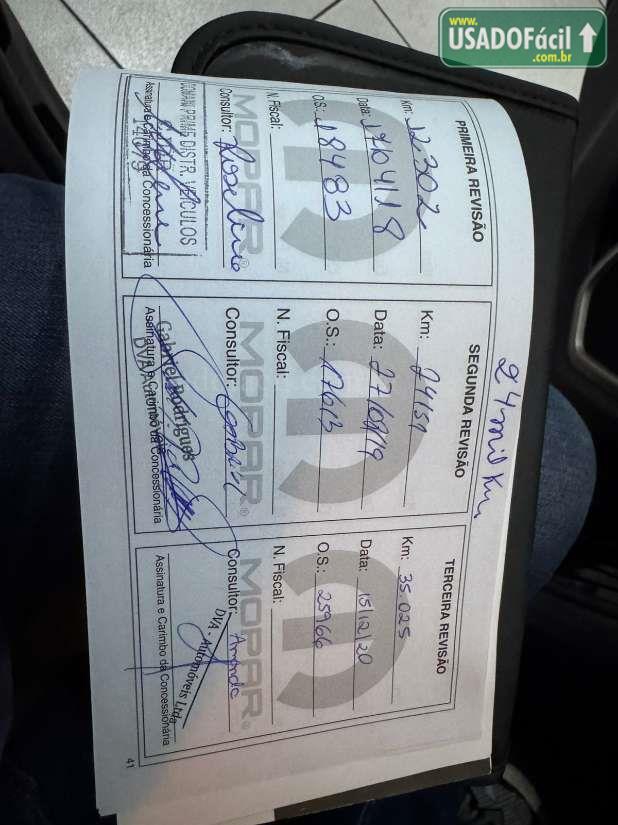 www.
USADOFácil
.com.br
24 mil Km.
PRIMEIRA REVISÃO
Km: 12302
Data: 17/04/18
O.S.: 18483
N. Fiscal:
MOPAR®
Consultor: Roseline
DOMANI PRIME DISTR. VEÍCULOS
Assinatura e Carimbo da Concessionária
SEGUNDA REVISÃO
Km: 24151
Data:
O.S.: 17613
N. Fiscal:
MOPAR®
Consultor: Gabriel
Gabriel Rodrigues
DVA
Assinatura e Carimbo da Concessionária
TERCEIRA REVISÃO
Km: 35.025
Data: 15/12/20
O.S.: 25966
N. Fiscal:
MOPAR®
Consultor: Amanda
DVA - Automóveis Ltda
Assinatura e Carimbo da Concessionária
41